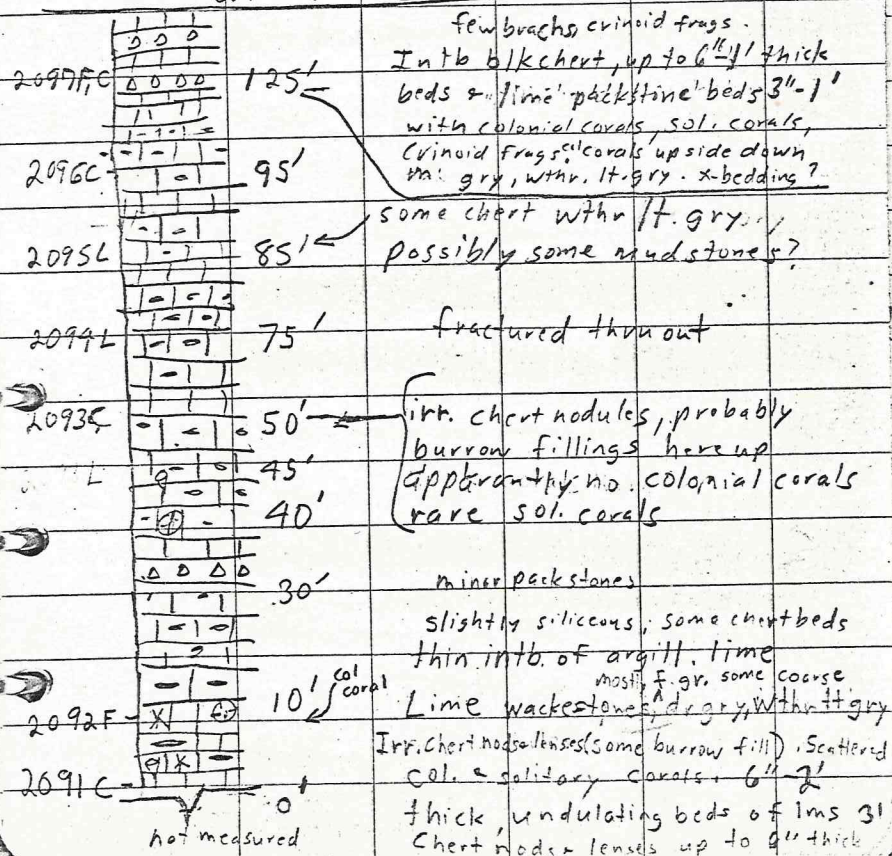 few brachs, crinoid frags.
Intb blk chert, up to 6"-1' thick
2097F,C 125' beds & lime packstine beds 3"-1'
with colonial corals, sol. corals,
Crinoid frags. col corals upside down
2096C 95' m. gry, wthr. lt. gry. x-bedding?
some chert wthr lt. gry
2095L 85' possibly some mudstones?
2094L 75' fractured thruout
2093C 50' irr. chert nodules, probably
burrow fillings here up
L 45' apparantly no. colonial corals
40' rare sol. corals
30' minor packstones
slightly siliceous, some chert beds
thin intb. of argill. lime
10' col coral mostly f. gr. some coarse
2092F Lime wackestones, dr gry, wthr lt gry
Irr. chert nods & lenses (some burrow fill). Scattered
2091C col. & solitary corals. 6"-2'
0' thick, undulating beds of lms 3'
not measured Chert nods & lenses up to thick